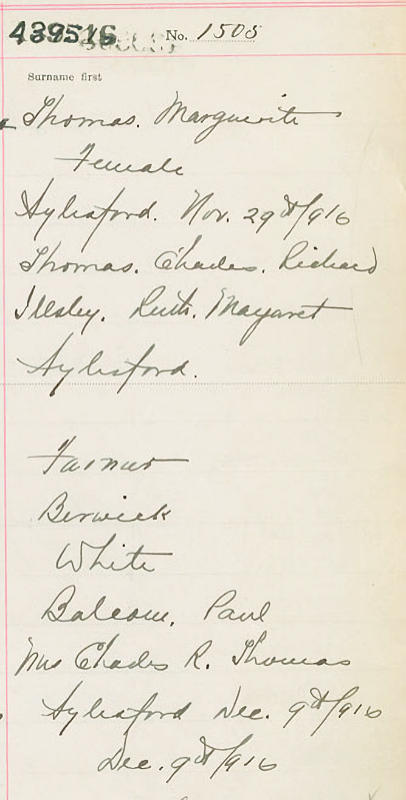 439516 No. 1505
Surname first
Thomas. Marguerite
Female
Aylesford. Nov. 29th/916
Thomas. Charles. Richard
Illsley. Ruth. Margaret
Aylesford.
Farmer
Berwick
White
Balcom. Paul
Mrs Charles R. Thomas
Aylesford Dec. 9th/916
Dec. 9th/916